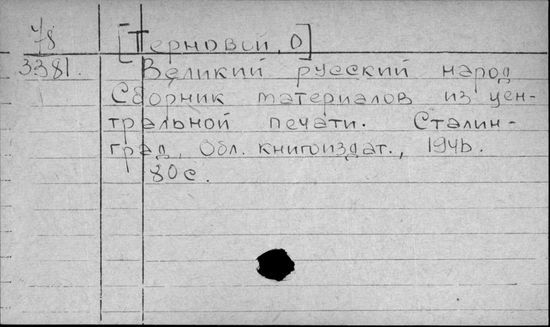 78 [Терновой, О]
3381. Великий русский народ
Сборник материалов из цен-
тральной печати. Сталин-
град, Обл. книгоиздат., 1946.
80с.